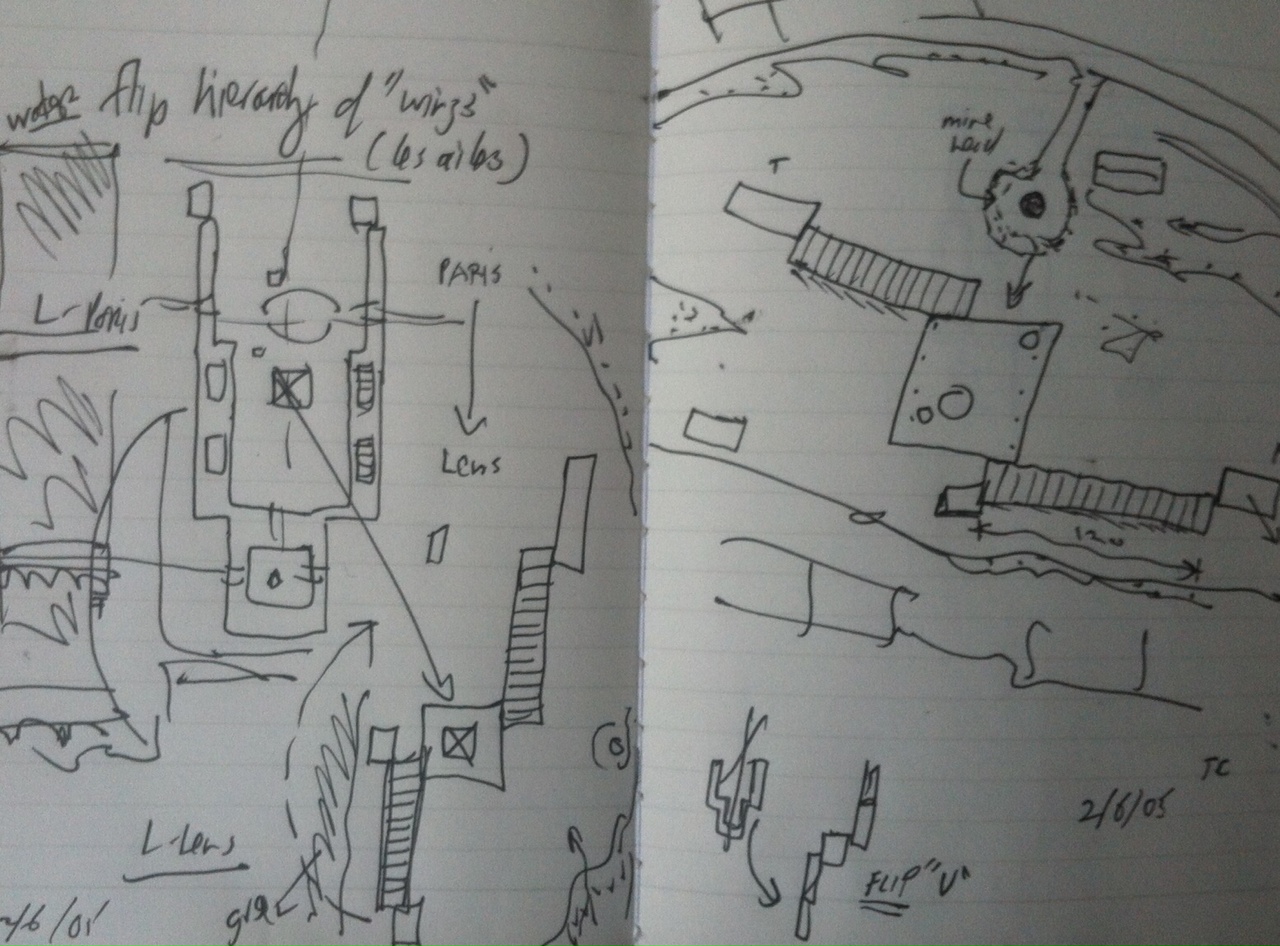 water
flip hierarchy of "wings"
(les ailes)
L-Paris
PARIS
Lens
L-Lens
2/6/05
mine
head
T
120
FLIP "V"
TC
2/6/05